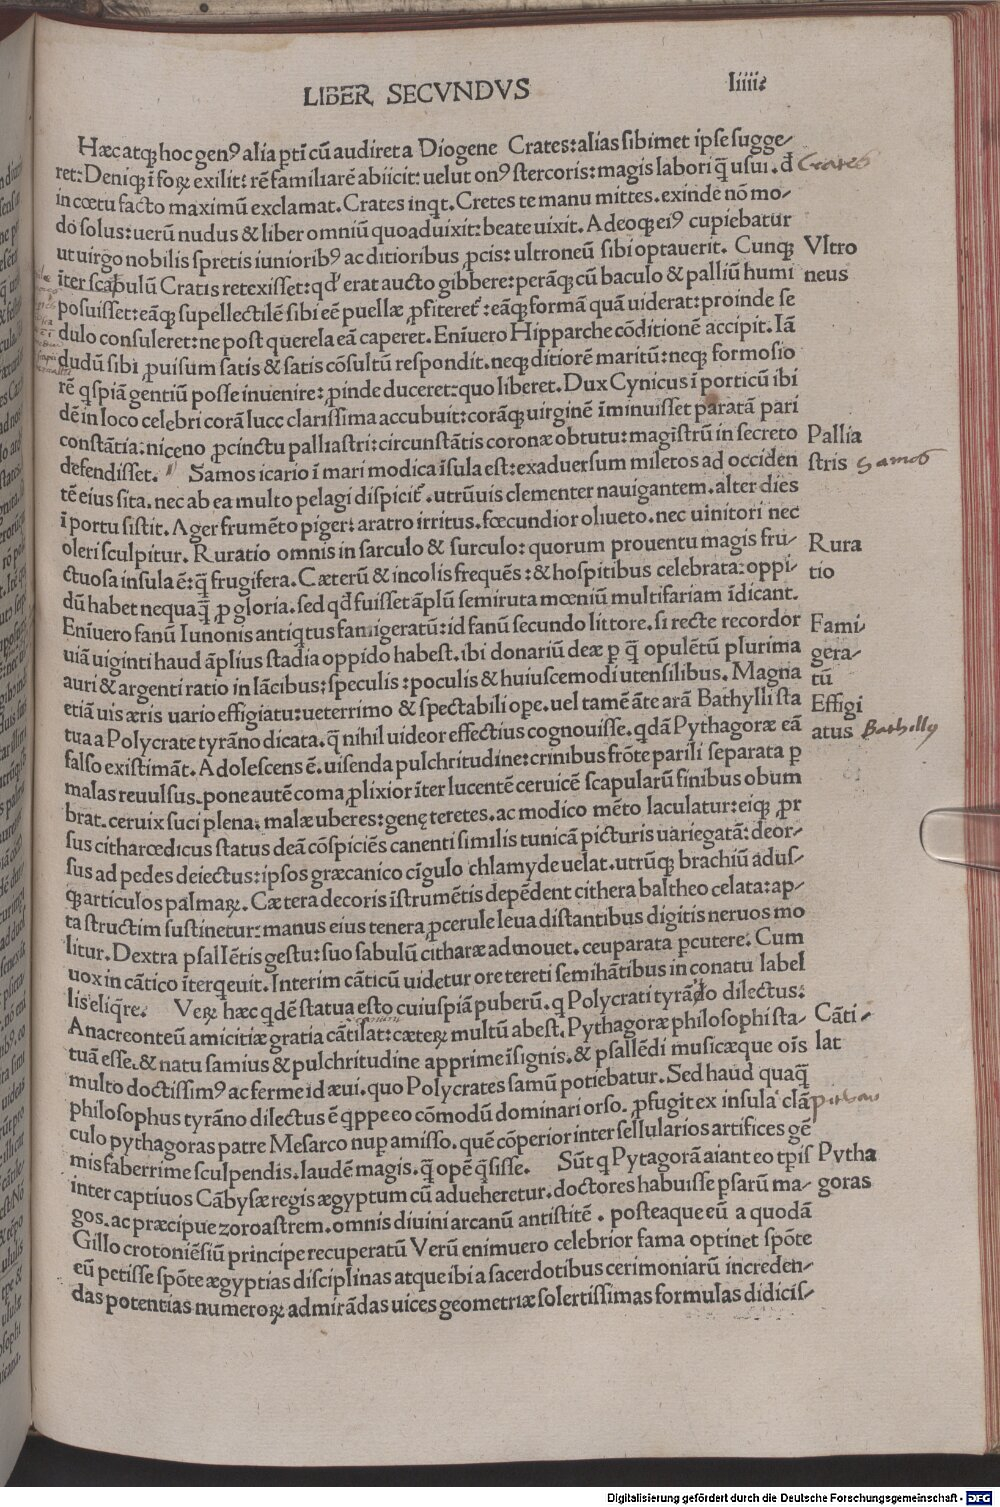 LIBER SECVNDVS
liiii.
Hæcatꝗ hoc genꝰ alia ꝑtī cū audiret a Diogene Crates: alias sibimet ipse sugge-
ret: Deniꝗ ī foꝝ exilit: rē familiarē abiicit: uelut onꝰ stercoris: magis labori q̄ usui. d̄
in cœtu facto maximū exclamat. Crates inqt. Cretes te manu mittes. exinde nō mo-
do solus: uerū nudus & liber omniū quoaduixit: beate uixit. Adeoꝗ eiꝰ cupiebatur
ut uirgo nobilis spretis iunioribꝰ ac ditioribus ꝓcis: ultroneū sibi optauerit. Cunꝗ
īter scapulū Cratis retexisset: qd̓ erat aucto gibbere: perāꝗ cū baculo & palliū humi
posuisset: eāꝗ supellectilē sibi eē puellæ ꝓfiteret̓: eāꝗ formā quā uiderat: proinde se
dulo consuleret: ne post querela eā caperet. Enīuero Hipparche cōditionē accipit. Iā
dudū sibi ꝓuisum satis & satis cōsultū respondit. neꝗ ditiorē maritū: neꝗ formosio
rē qspiā gentiū posse inuenire: ꝓinde duceret: quo liberet. Dux Cynicus ī porticū ibi
dē in loco celebri corā lucc clarissima accubuit: corāꝗ uirginē īminuisset paratā pari
constātia: niceno ꝓcinctu palliastri: circunstātis coronæ obtutu: magistrū in secreto
defendisset. Samos icario ī mari modica īsula est: exaduersum miletos ad occiden
tē eius sita. nec ab ea multo pelagi dispicit̓. utrūuis clementer nauigantem. alter dies
ī portu sistit. Ager frumēto piger: aratro irritus. fœcundior oliueto. nec uinitori nec
oleri sculpitur. Ruratio omnis in sarculo & surculo: quorum prouentu magis fru-
ctuosa insula ē: q̄ frugifera. Cæterū & incolis frequēs: & hospitibus celebrata: oppi-
dū habet nequaq̄ ꝓ gloria. sed qd̓ fuisset āplū semiruta mœniū multifariam īdicant.
Enīuero fanū Iunonis antiqtus famigeratū: id fanū secundo littore. si recte recordor
uiā uiginti haud āplius stadia oppido habest. ibi donariū deæ ꝑ q̄ opulētū plurima
auri & argenti ratio in lācibus: speculis: poculis & huiuscemodi utensilibus. Magna
etiā uis æris uario effigiatu: ueterrimo & spectabili ope. uel tamē āte arā Bathylli sta
tua a Polycrate tyrāno dicata. q̄ nihil uideor effectius cognouisse. qdā Pythagoræ eā
falso existimāt. Adolescens ē. uisenda pulchritudine: crinibus frōte parili separata ꝑ
malas reuulsus. pone autē coma ꝓlixior īter lucentē ceruicē scapularū finibus obum
brat. ceruix suci plena. malæ uberes: genę teretes. ac modico mēto laculatur: eiꝗ ꝓr
sus citharœdicus status deā cōspiciēs canenti similis tunicā picturis uariegatā: deor-
sus ad pedes deiectus: ipsos græcanico cīgulo chlamyde uelat. utrūꝗ brachiū adus-
ꝗ articulos palmaꝝ. Cætera decoris īstrumētis depēdent cithera baltheo celata: ap-
ta structim sustinetur: manus eius tenera ꝓcerule leua distantibus digitis neruos mo
litur. Dextra psallētis gestu: suo sabulū citharæ admouet. ceu parata ꝑcutere. Cum
uox in cātico īterqeuit. Interim cāticū uidetur ore tereti semihātibus in conatu label
lis eliqre. Veꝝ hæc qdē statua esto cuiuspiā puberū. q Polycrati tyrādo dilectus:
Anacreonteū amicitiæ gratia cātilat: cæteꝝ multū abest. Pythagoræ philosophi sta-
tuā esse. & natu samius & pulchritudine apprime īsignis. & psallēdi musicæque oīs
multo doctissimꝰ ac ferme id æui. quo Polycrates samū potiebatur. Sed haud quaq̄
philosophus tyrāno dilectus ē qppe eo cōmodū dominari orso. ꝓfugit ex insula clā
culo pythagoras patre Mesarco nup amisso. quē cōperior inter sellularios artifices gē
mis faberrime sculpendis. laudē magis. q̄ opē q̄sisse. Sūt q Pytagorā aiant eo tꝑis
inter captiuos Cābysæ regis ægyptum cū adueheretur. doctores habuisse psarū ma-
gos. ac præcipue zoroastrem. omnis diuini arcanū antistitē. posteaque eū a quodā
Gillo crotoniēsiū principe recuperatū Verū enimuero celebrior fama optinet spōte
eū petisse spōte ægyptias disciplinas atque ibi a sacerdotibus cerimoniarū increden-
das potentias numeroꝝ admirādas uices geometriæ solertissimas formulas didicis-
Crates
Vltro
neus
Pallia
stris
Samos
Rura
tio
Fami-
gera-
tū
Effigi
atus
Bathilly
Cāti-
lat
Pytha
goras
Digitalisierung gefördert durch die Deutsche Forschungsgemeinschaft - DFG